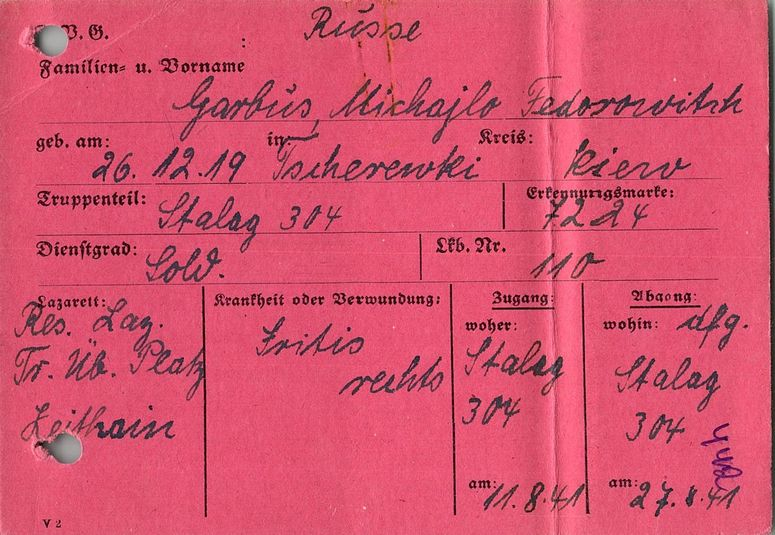 V. G. : Russe
Familien- u. Vorname
Garbus, Michajlo Fedorowitsh
geb. am: in: Kreis:
26. 12. 19 Tscherewki Kiew
Truppenteil: Stalag 304 Erkennungsmarke: 7224
Dienstgrad: Sold. Lkb. Nr. 110
Lazarett: Krankheit oder Verwundung: Zugang: Abgang:
Res. Laz. Iritis woher: wohin: dfg.
Tr. Üb. Platz rechts Stalag Stalag
Zeithain 304 304
am: 11.8.41 am: 27.8.41
V 2